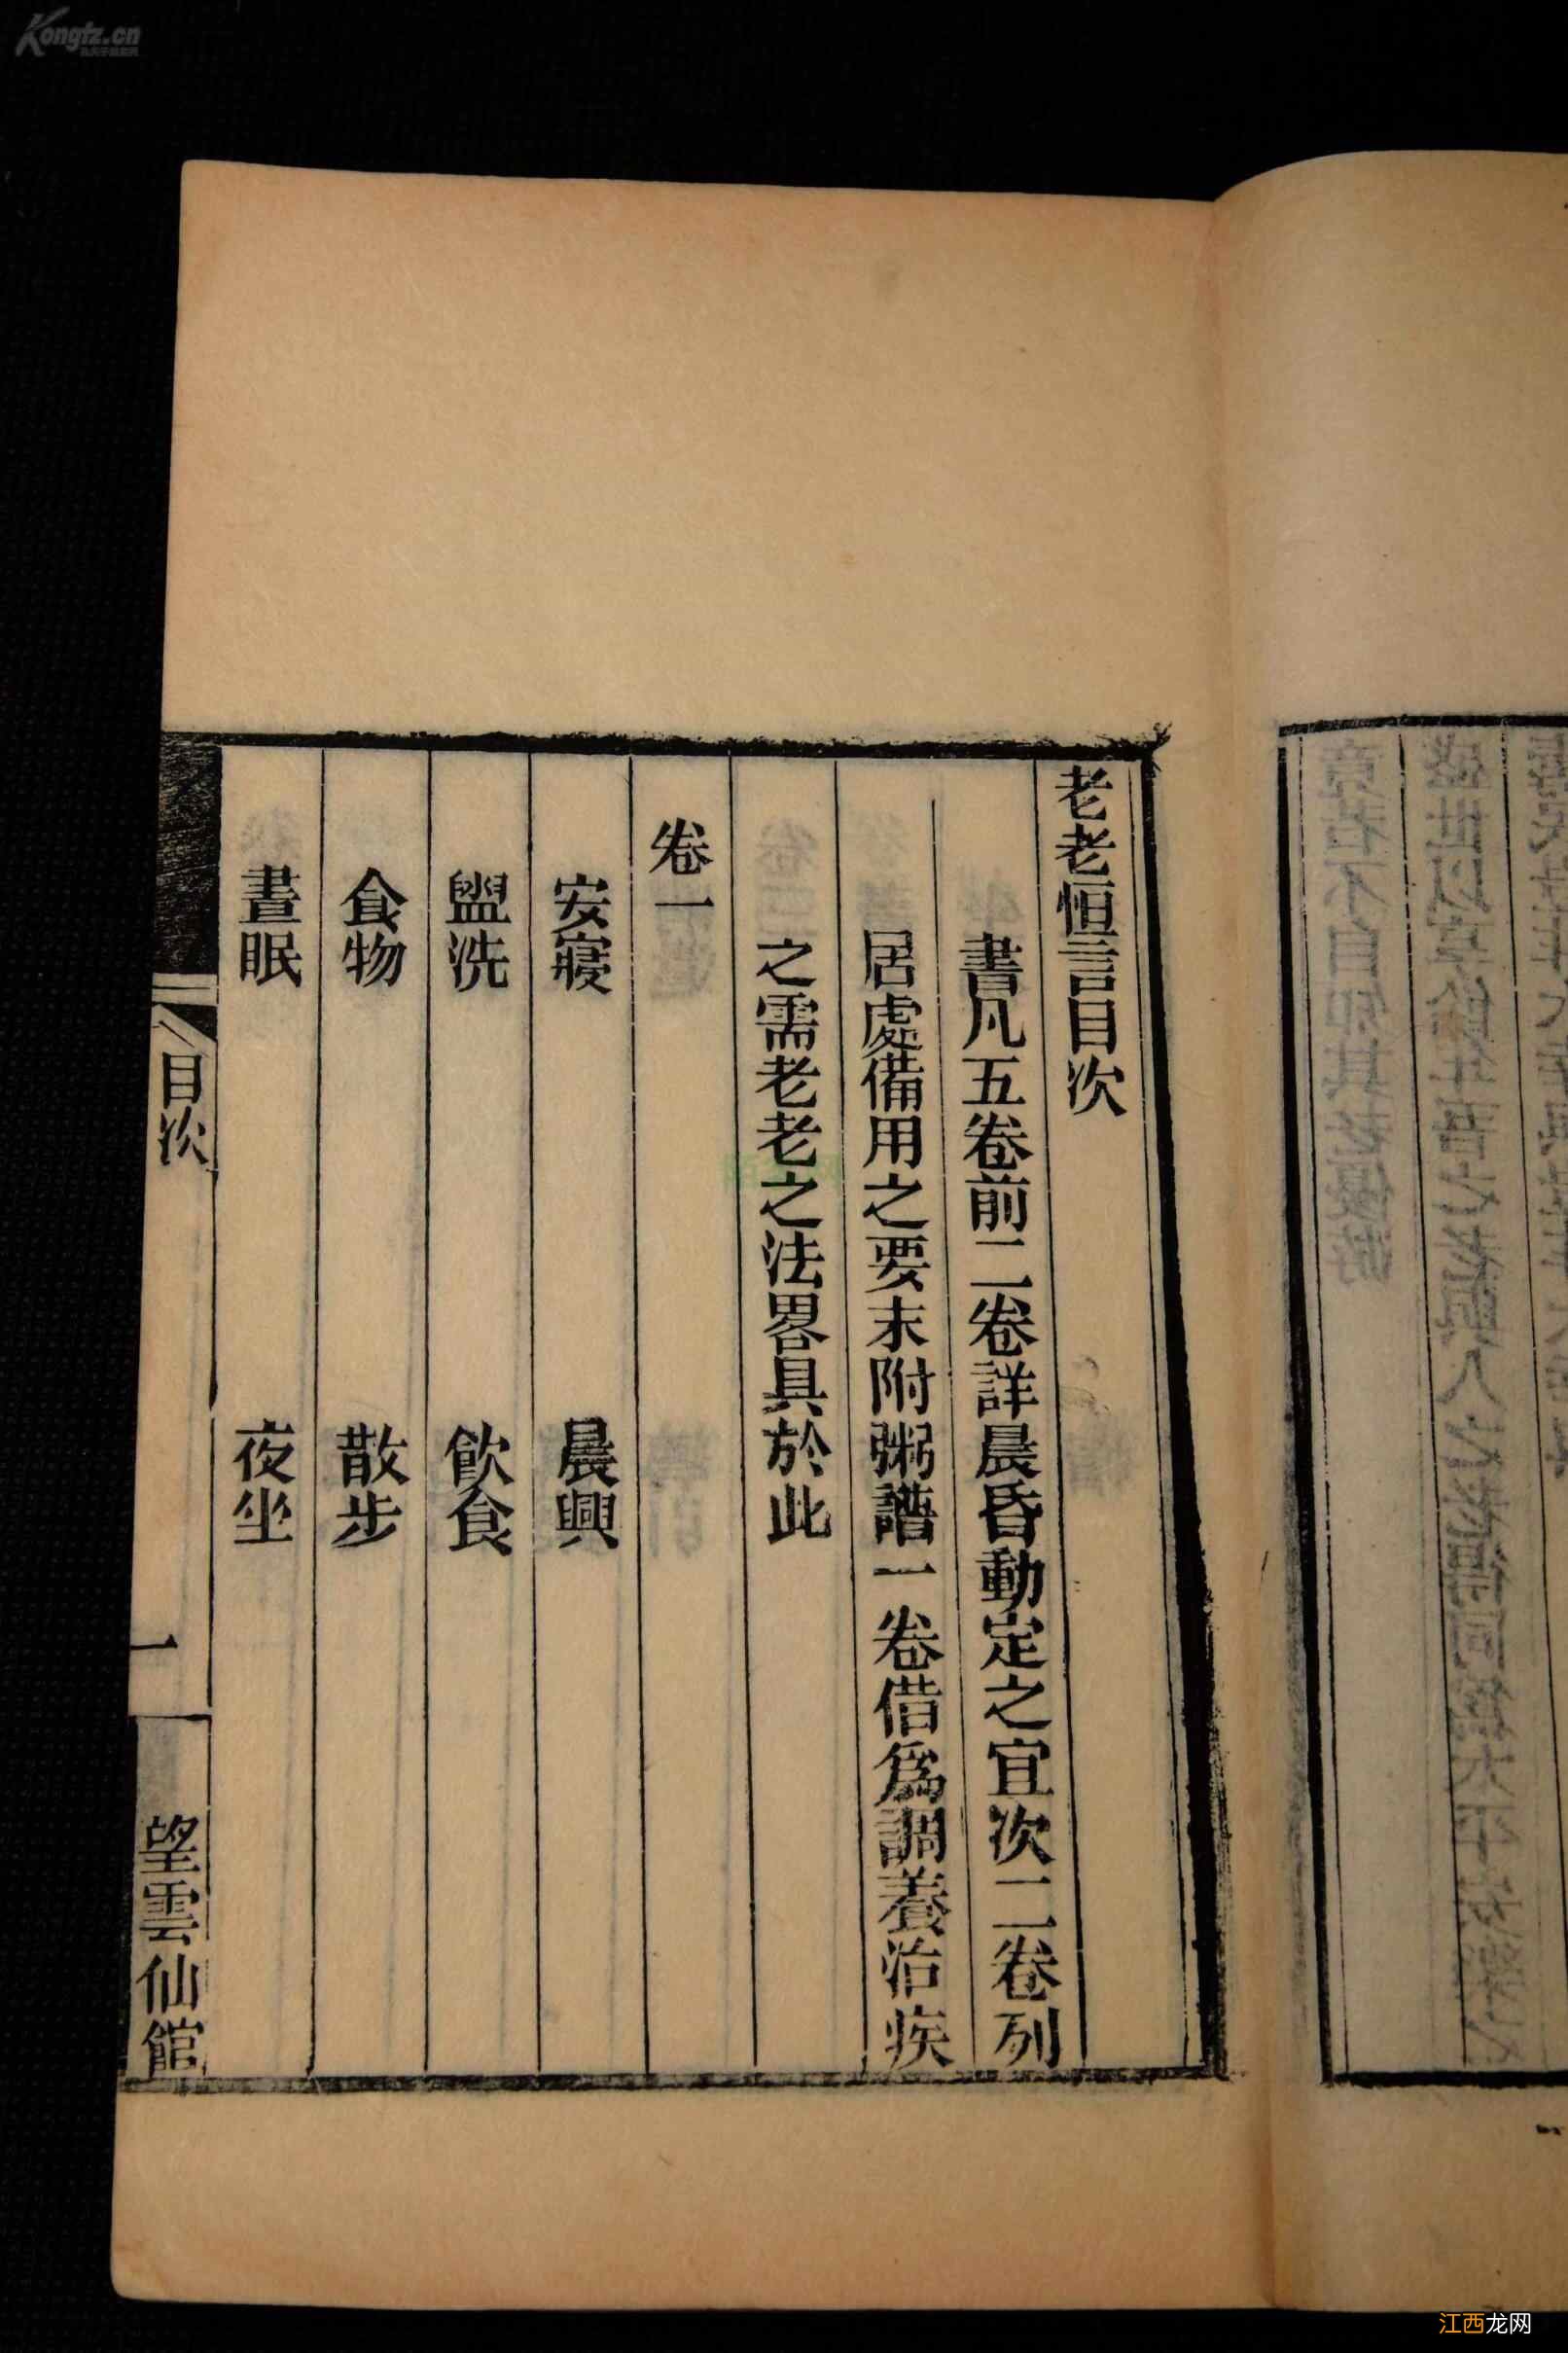 老老恒言目次
書凡五卷前二卷詳晨昏動定之宜次二卷列
居處備用之要末附粥譜一卷借爲調養治疾
之需老老之法畧具於此
卷一
安寢 晨興
盥洗 飲食
食物 散步
晝眠 夜坐
目次 一 望雲仙館
Kongfz.cn
江西龙网